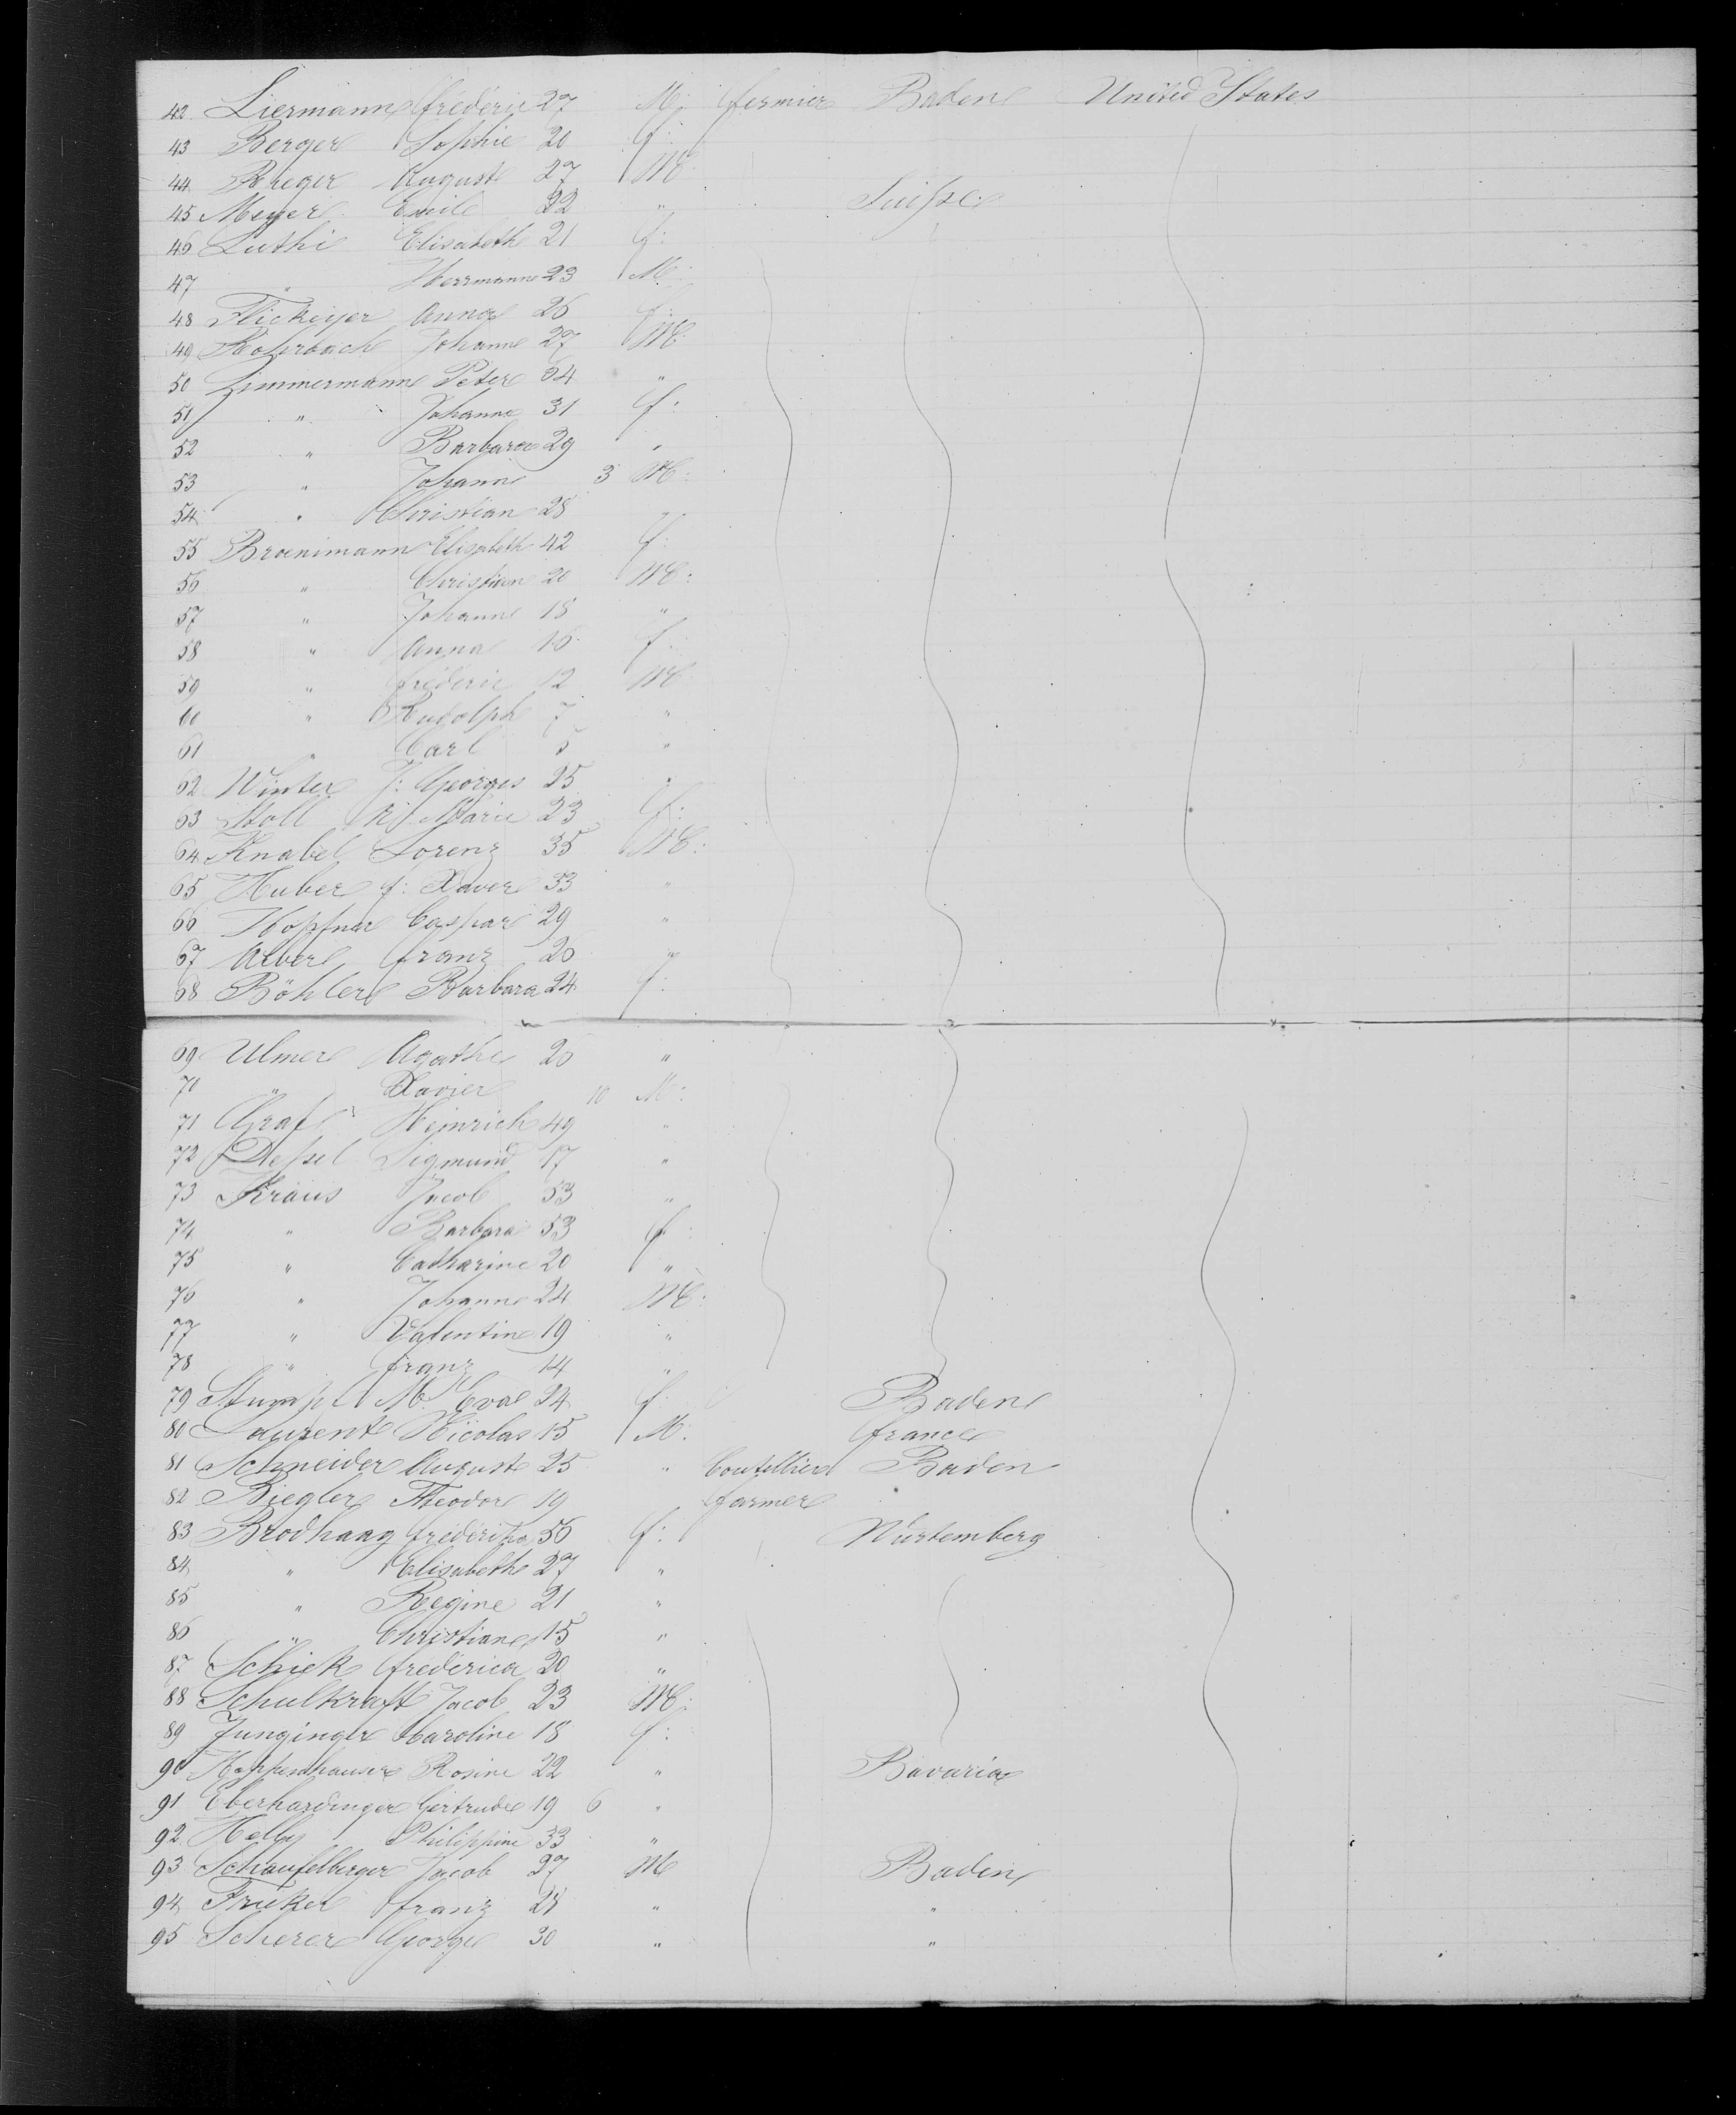 42 Liermann frédéric 27 M: fermier Baden United States
43 Berger Sophie 20 f:
44 August 27 M:
45 Meyer Emile 22 " Suisse
46 Luthi Elisabeth 21 f:
47 " Herrmann 23 M:
48 Flickeijer Anna 26 f:
49 Rohrbach Johann 27 M:
50 Zimmermann Peter 64 "
51 " Johanne 31 f:
52 " Barbara 29 "
53 " Johann 3 M:
54 " Christian 28 "
55 Broenimann Elisabeth 42 f:
56 " Christian 20 M:
57 " Johann 18 "
58 " Anna 16 f:
59 " fréderic 12 M:
60 " Rudolph 7 "
61 " Carl 5 "
62 Winter J: Georges 25 "
63 Stoll Marie 23 f:
64 Knabel Lorenz 35 M:
65 Huber f: Xaver 33 "
66 Hopfner Caspar 29 "
67 franz 26 "
68 Böhler Barbara 24 f:
69 Ulmer Agathe 26 "
70 " Xavier 10 M:
71 Graf Heinrich 49 "
72 Sigmund 17 "
73 Kraus Jacob 53 "
74 " Barbara 53 f:
75 " Catharine 20 "
76 " Johann 24 M:
77 " Valentin 19 "
78 " franz 14 "
79 Stumpf M: Eva 24 f: Baden
80 Laurent Nicolas 15 M: france
81 Schneider August 25 " Coutellier Baden
82 Biegler Theodor 19 farmer "
83 Brodhaag frédérika 56 f: Wurtemberg
84 " Elisabeth 27 "
85 " Regine 21 "
86 " Christiane 15 "
87 Schiek frederica 20 "
88 Schulkraft Jacob 23 M:
89 Junginger Caroline 18 f:
90 Hoppenhauser Rosine 22 " Bavaria
91 Eberhardinger Gertrude 19 6 "
92 Helly Philippine 33 "
93 Schaufelberger Jacob 27 M Baden
94 Fricker franz 28 " "
95 Scherer George 30 " "